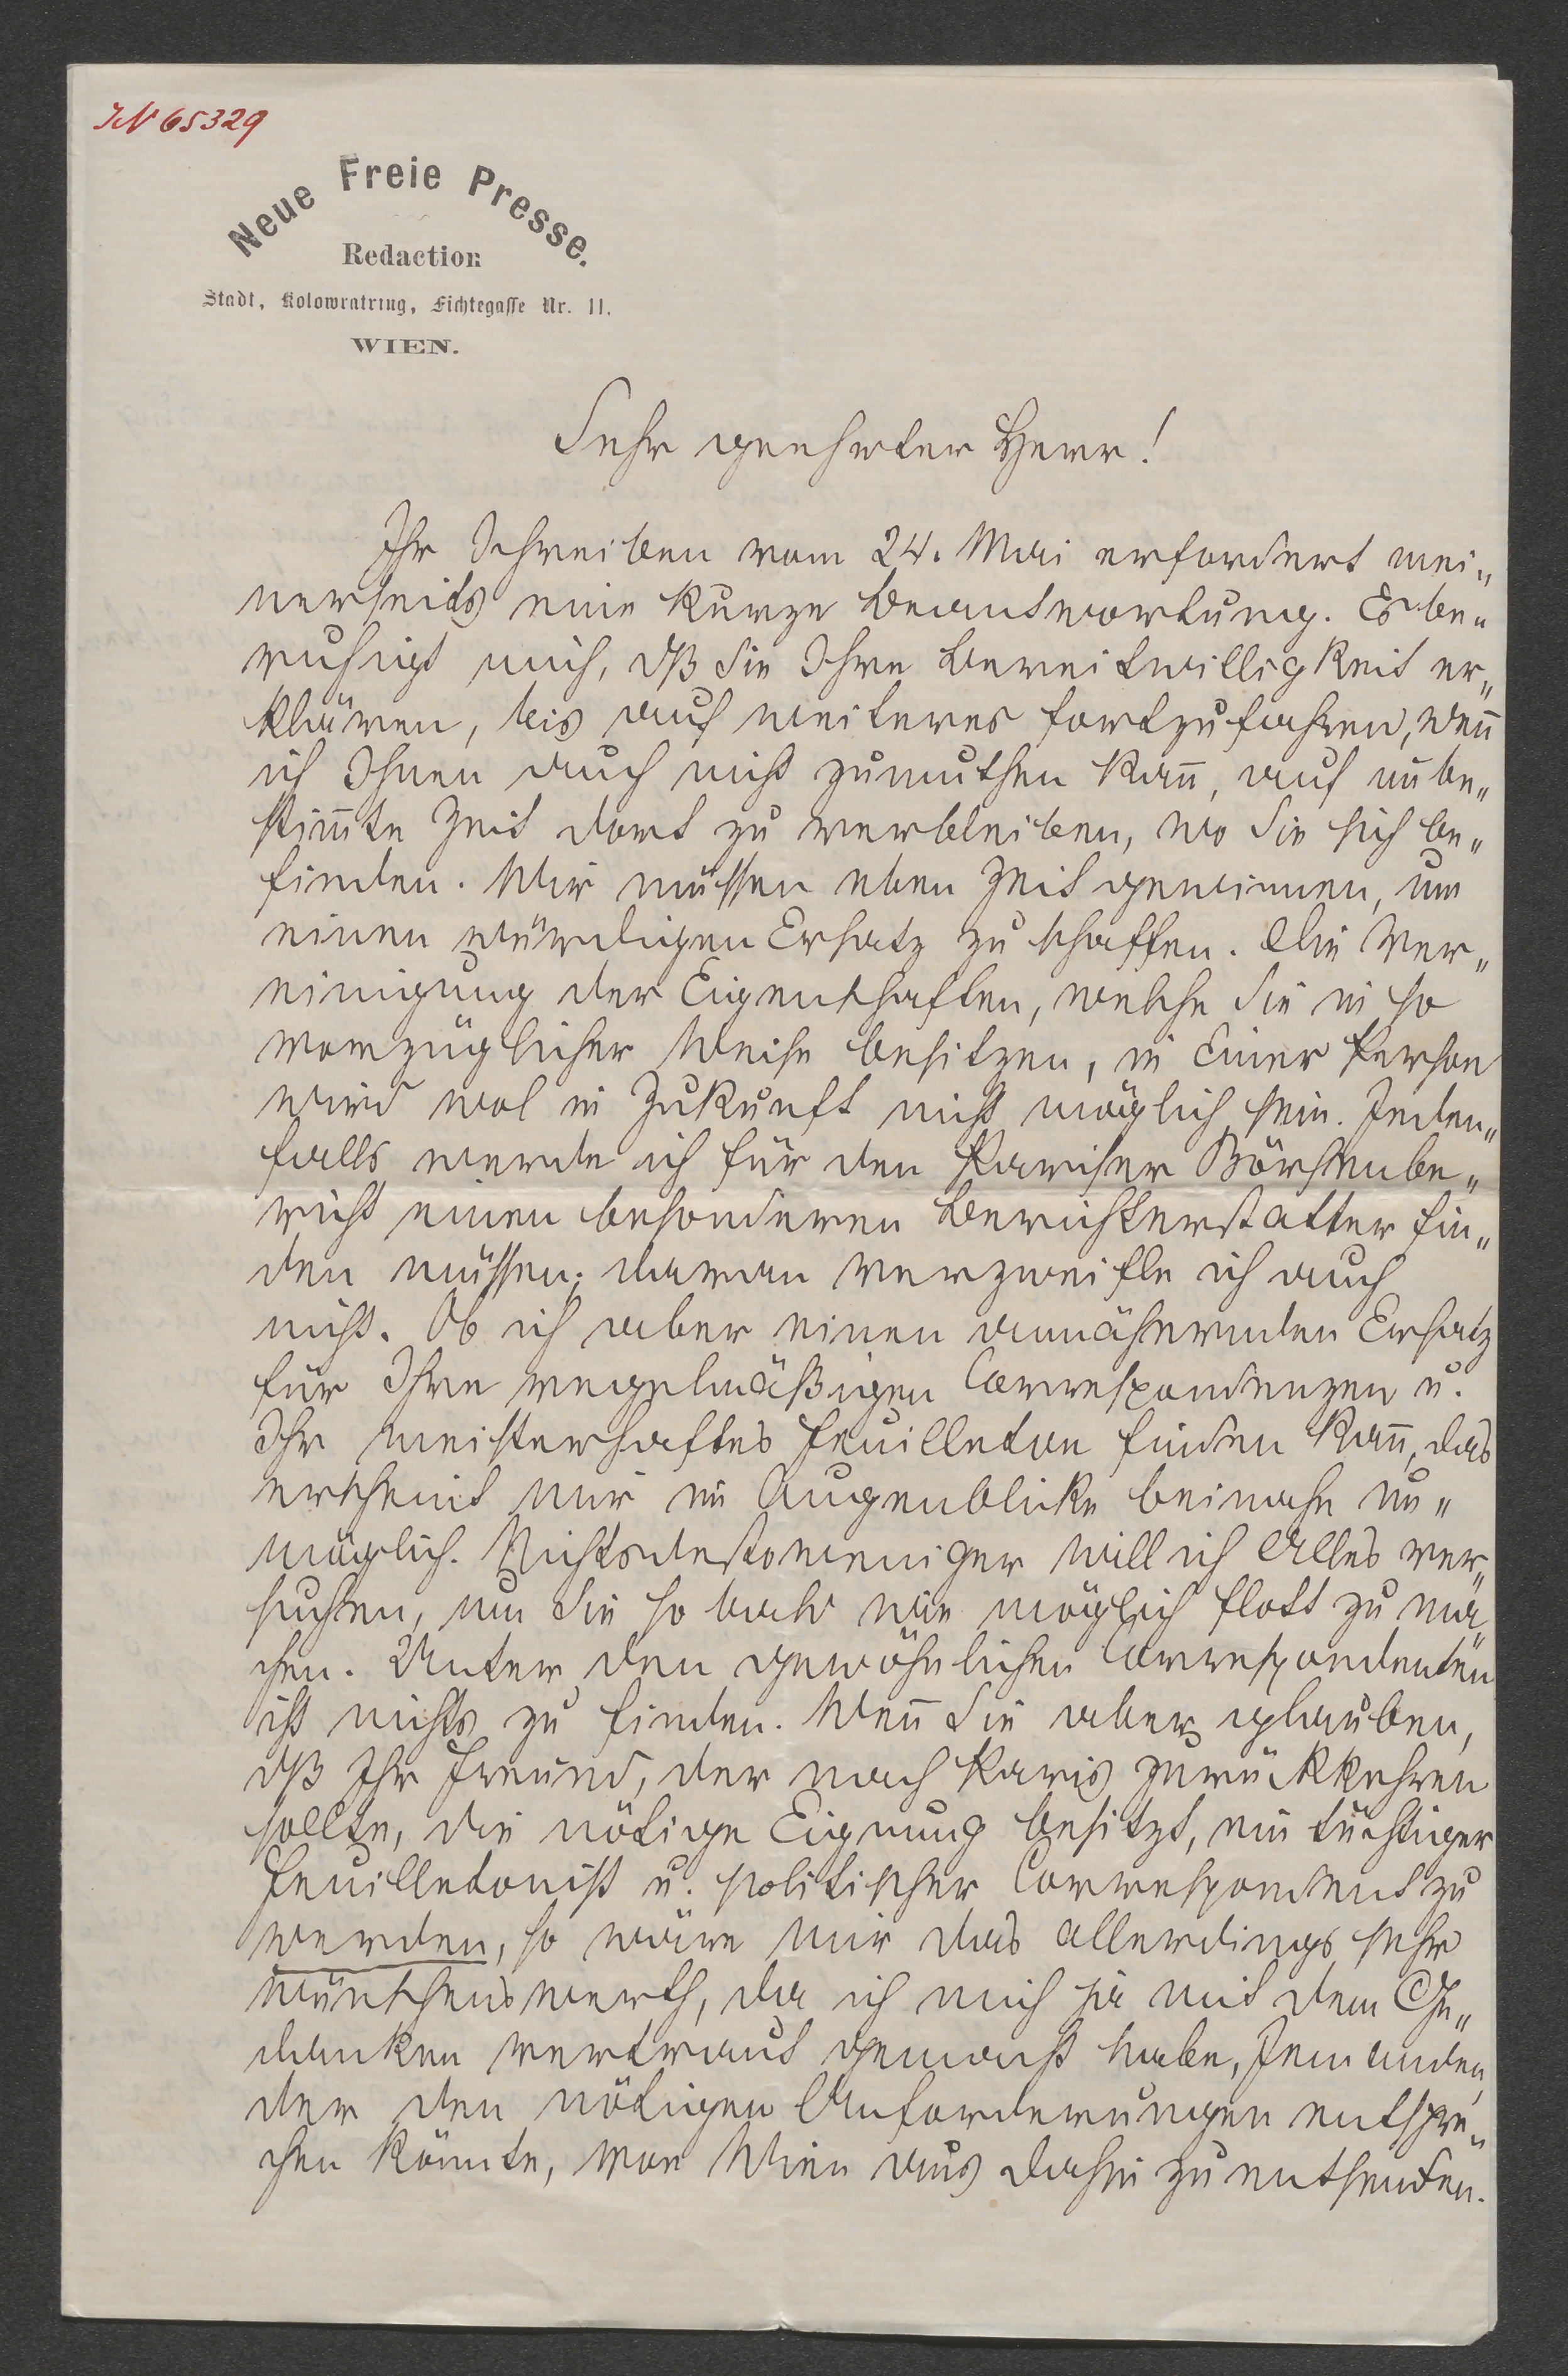 IN 65329
Neue Freie Presse.
Redaction
Stadt, Kolowratring, Fichtegasse Nr. 11.
WIEN.
Sehr geehrter Herr!
Ihr Schreiben vom 24. Mai erfordert mei„
nerseits eine kurze Beantwortung. Es be„
ruhigt mich, dß Sie Ihre Bereitwilligkeit er„
klären, bis auf weiteres fortzufahren, weñ
ich Ihnen auch nicht zumuthen kañ, auf unbe„
stim̃te Zeit dort zu verbleiben, wo Sie sich be„
finden. Wir müssen eben Zeit gewinnen, um
einen würdigen Ersatz zu schaffen. Die Ver„
einigung der Eigenschaften, welche Sie in so
vorzüglicher Weise besitzen, in Einer Person
wird wol in Zukunft nicht möglich sein. Jeden„
falls werde ich für den Pariser Börsenbe„
richt einen besonderen Berichterstatter fin„
den müssen; daran verzweifle ich auch
nicht. Ob ich aber einen annähernden Ersatz
für Ihre regelmäßigen Correspondenzen u.
Ihr meisterhaftes Feuilleton finden kañ, das
erscheint mir im Augenblicke beinahe un„
möglich. Nichtsdestoweniger will ich Alles ver„
suchen, um Sie so bald wie möglich flott zu ma„
chen. Unter den gewöhnlichen Correspondenten
ist nichts zu finden. Weñ Sie aber glauben,
dß Ihr Freund, der nach Paris zurückkehren
sollte, die nötige Eignung besitzt, ein tüchtiger
Feuilletonist u. politischer Correspondent zu
werden, so wäre mir das allerdings sehr
wünschenswerth, da ich mich ja mit dem Ge„
danken vertraut gemacht habe, Jemanden,
der den nötigen Anforderungen entspre„
chen könnte, von Wien aus dahin zu entsenden.